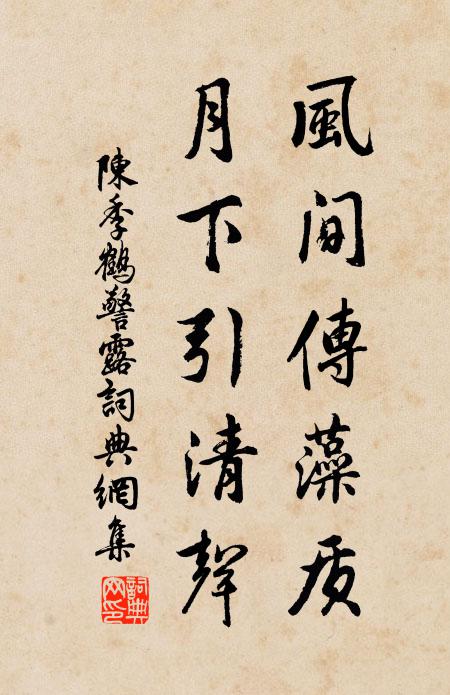 風間傳藻质
月下引清聲
陳季鶴警露詞典網集
詞典网印